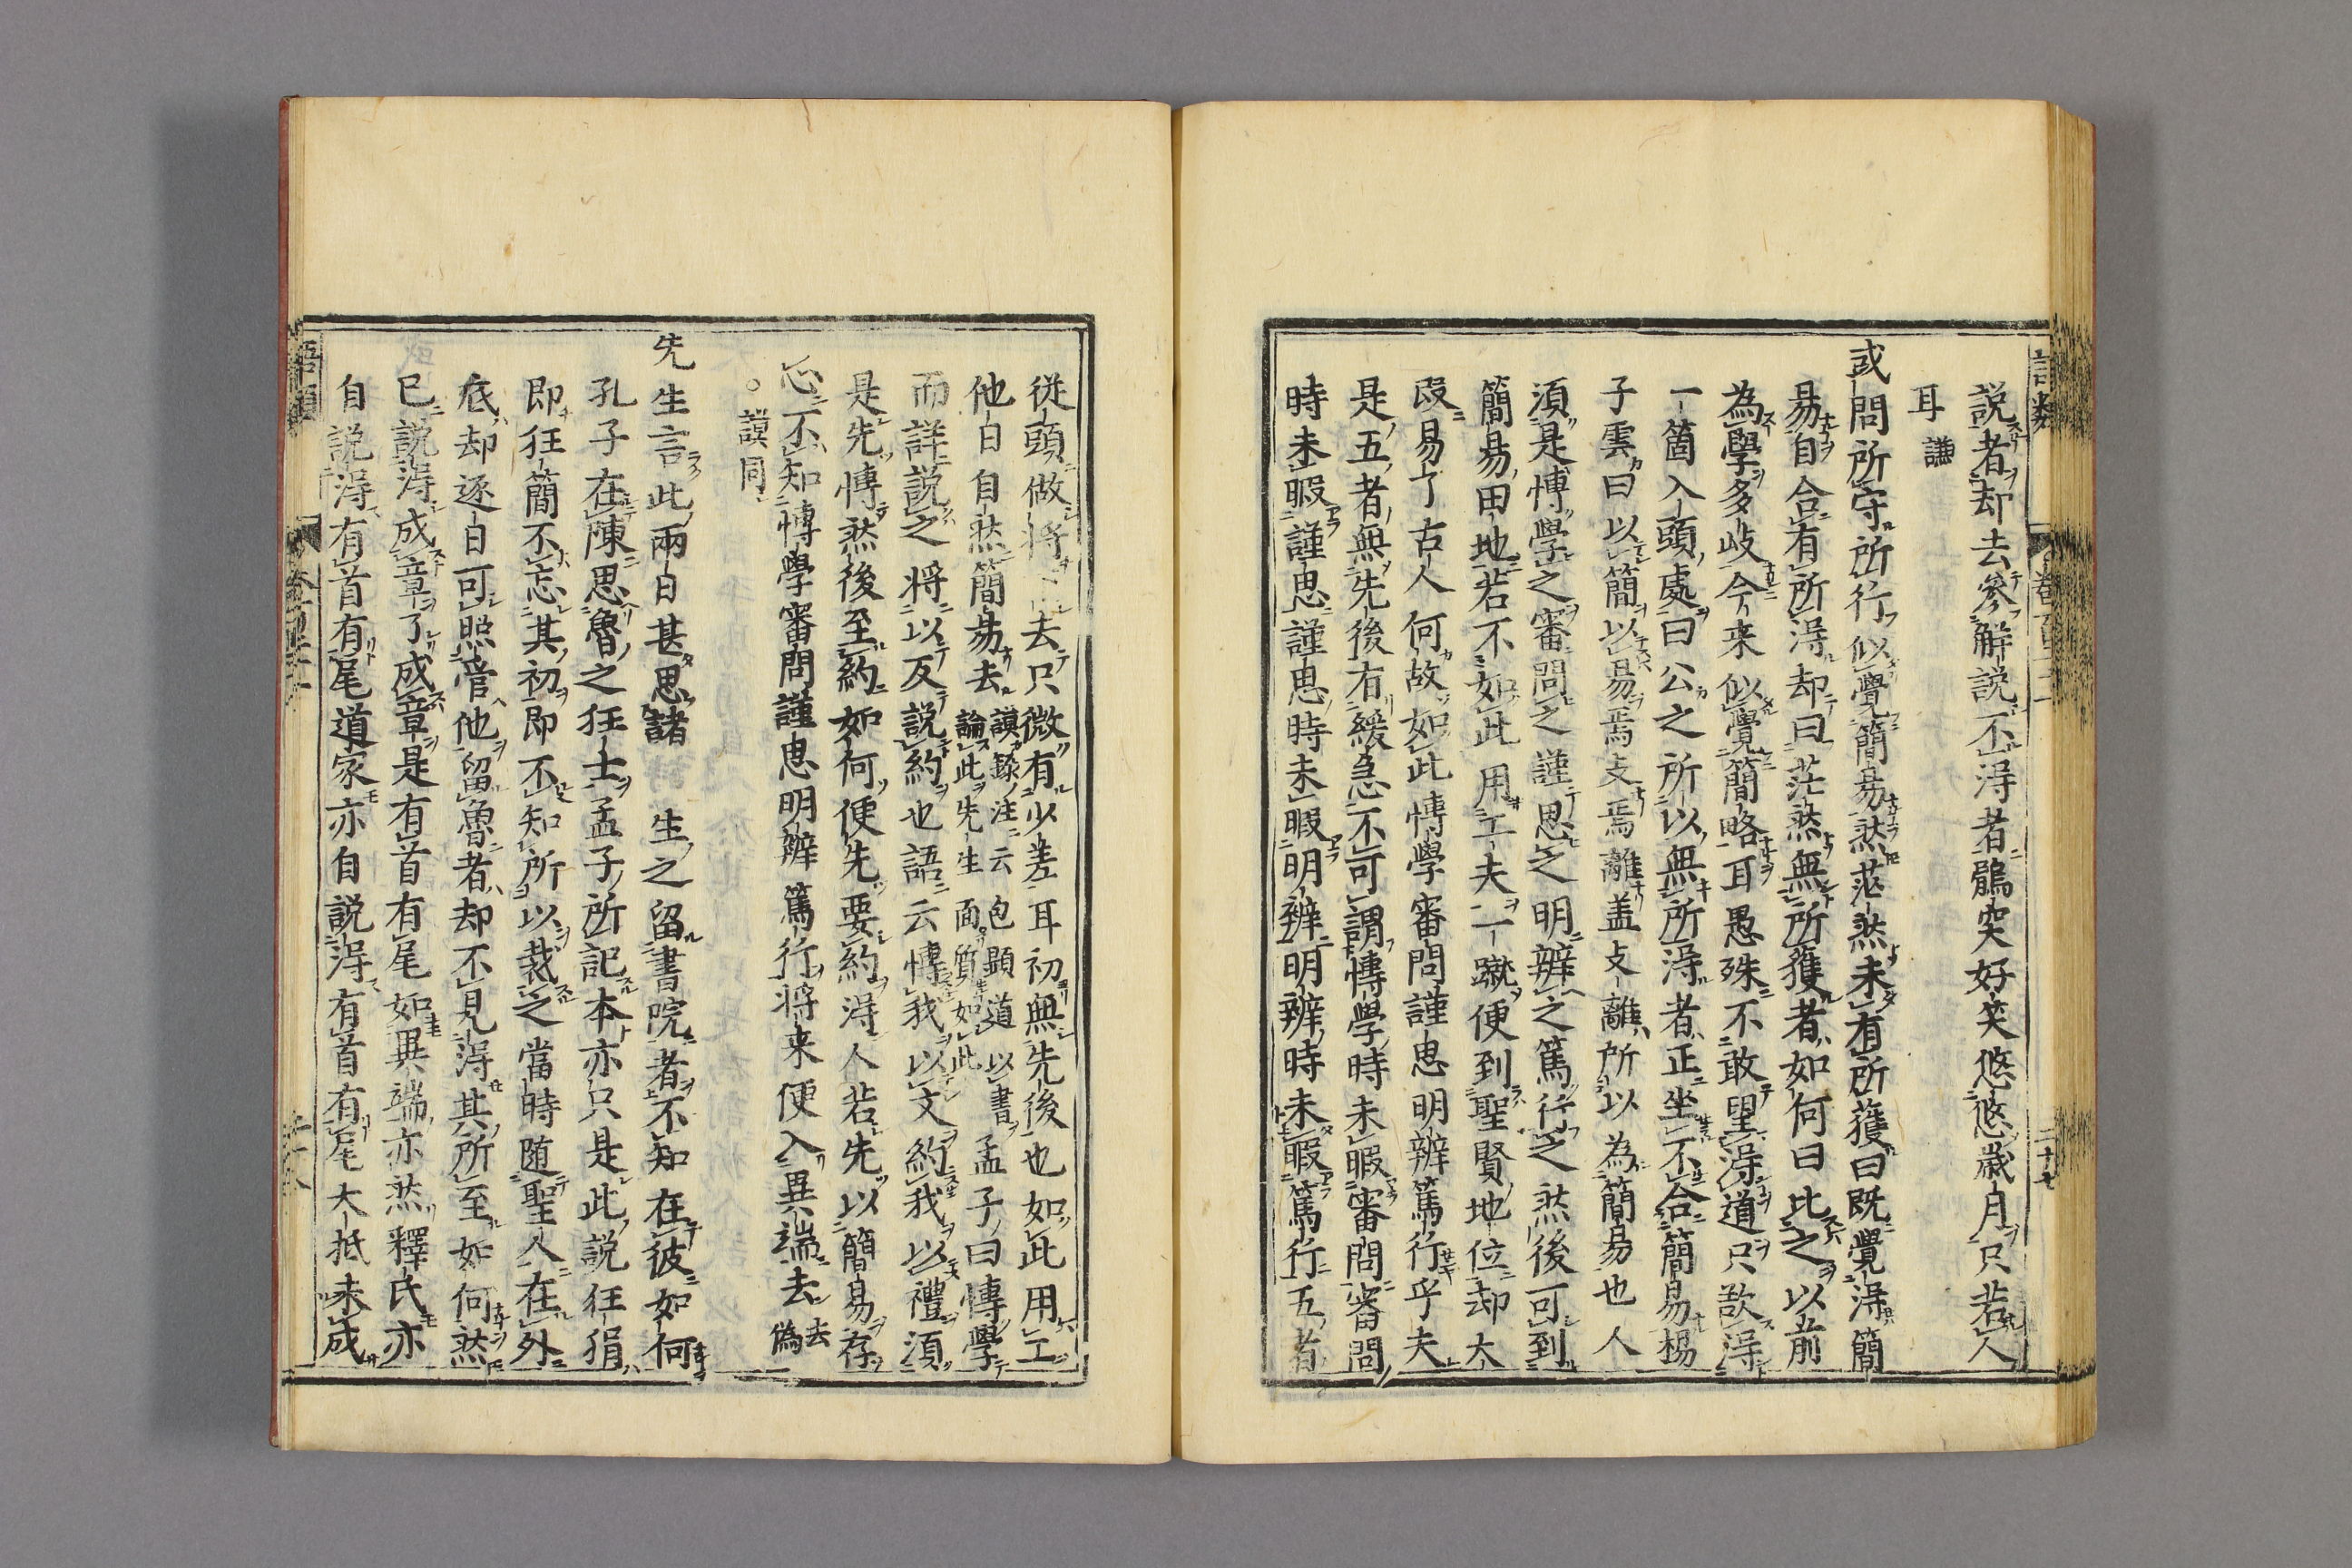 語類 卷百二十一 二十七
説者却去參解説不得者鶻突好笑悠悠歲月只若人
耳 謙
或問所守所行似覺簡易然茫然未有所獲曰既覺得簡
易自合有所得却曰茫然無所獲者如何曰比之以前
為學多岐今来似覺簡略耳愚殊不敢望得道只欲得
一箇入頭處曰公之所以無所得者正坐不合簡易楊
子雲曰以簡以易焉支焉離盖支離所以為簡易也人
須是愽學之審問之謹思之明辨之篤行之然後可到
簡易田地若不如此用工夫一蹴便到聖賢地位却大
段易了古人何故如此愽學審問謹思明辨篤行乎夫
是五者無先後有緩急不可謂愽學時未暇審問審問
時未暇謹思謹思時未暇明辨明辨時未暇篤行五者
従頭做將下去只微有少差耳初無先後也如此用工
他日自然簡易去 謨録注云包顯道以書論此先生面質如此 孟子曰愽學
而詳説之将以反説約也語云愽我以文約我以禮須
是先愽然後至約如何便先要約得人若先以簡易存
心不知愽學審問謹思明辨篤行将来便入異端去 去偽
○謨同
先生言此兩日甚思諸 生之留書院者不知在彼如何
孔子在陳思魯之狂士孟子所記本亦只是此説狂狷
即狂簡不忘其初即不知所以裁之當時随聖人在外
底却逐日可照管他留魯者却不見得其所至如何然
已説得成章了成章是有首有尾如異端亦然釋氏亦
自説得有首有尾道家亦自説得有首有尾大抵未成
語類